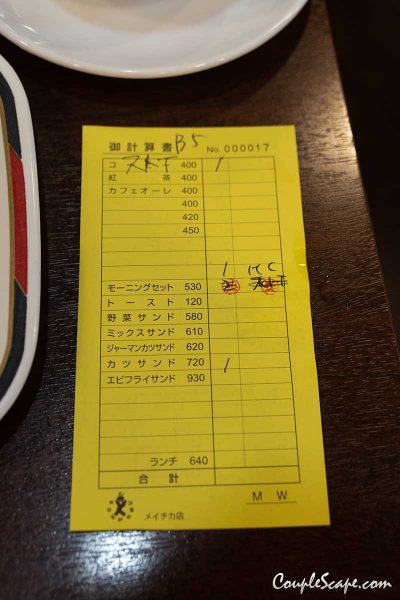 御計算書 B5 No. 000017
コ 400 1
紅 茶 400
カフェオーレ 400
400
420
450
1
モーニングセット 530
トースト 120
野菜サンド 580
ミックスサンド 610
ジャーマンカツサンド 620
カツサンド 720 1
エビフライサンド 930
ランチ 640
合 計
メイチカ店
M W
CoupleScape.com